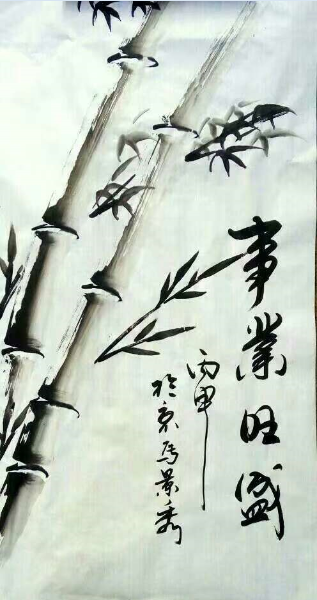 事業旺盛
丙申
於京馬景秀